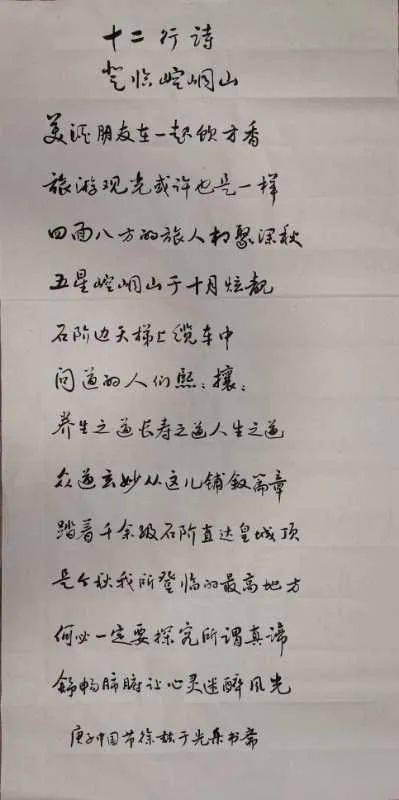 十二行诗
登临崆峒山
美酒朋友在一起饮才香
旅游观光或许也是一样
四面八方的旅人相聚深秋
五星崆峒山于十月炫靓
石阶边天梯上缆车中
问道的人们熙:攘:
养生之道长寿之道人生之道
众道玄妙从这儿铺叙篇章
踏着千余级石阶直达皇城顶
是个秋我所登临的最高地方
何必一定要探究所谓真谛
舒畅肺腑让心灵迷醉风光
庚子中国节徐 于光 书斋